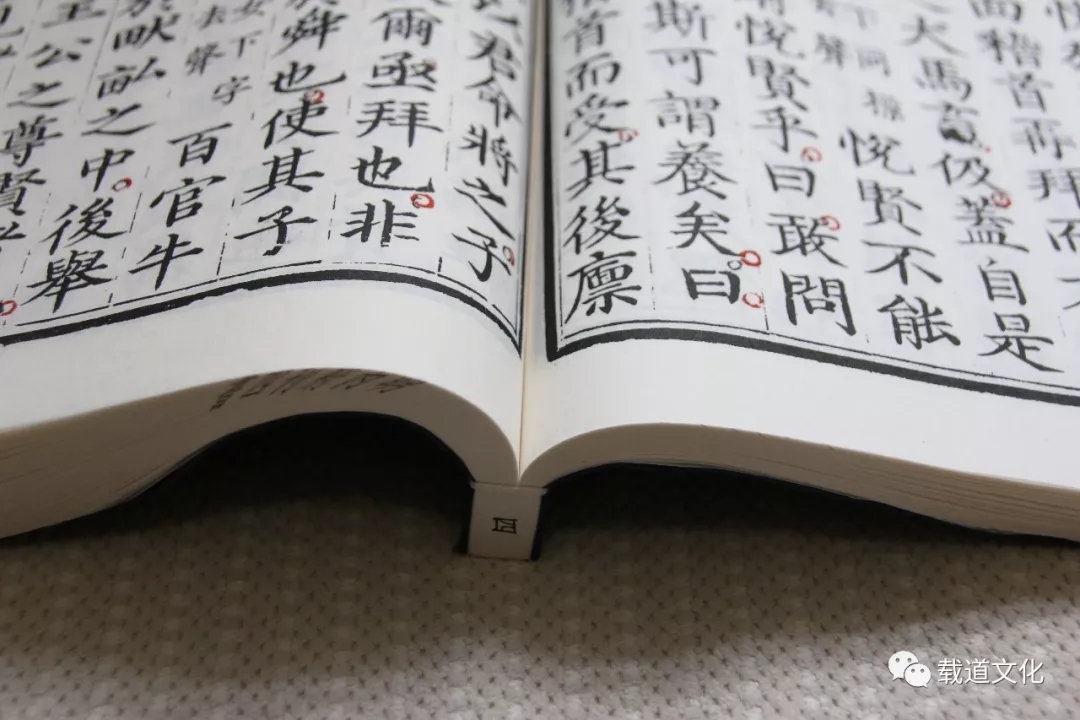 面稽首再拜而不
犬馬畜伋蓋自是
下同
聲
悅賢不能
悅賢乎曰敢問
斯可謂養矣曰
首而受其後廩
君命將之子
爾亟拜也非
於舜也使其子
女下字
去聲
百官牛
於畎畝之中後舉
王公之尊賢
四
载道文化